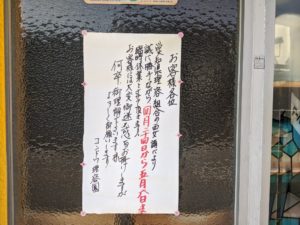 お客様各位
愛知県理容組合の要請により
議に勝手ながら四月二十四日から五月六日まで
臨時休業とさせて頂きます。
お客様には大変御迷惑をお掛けしますが
何卒、御理解下さいます様
よろしくお願いします。
コンドウ理容園